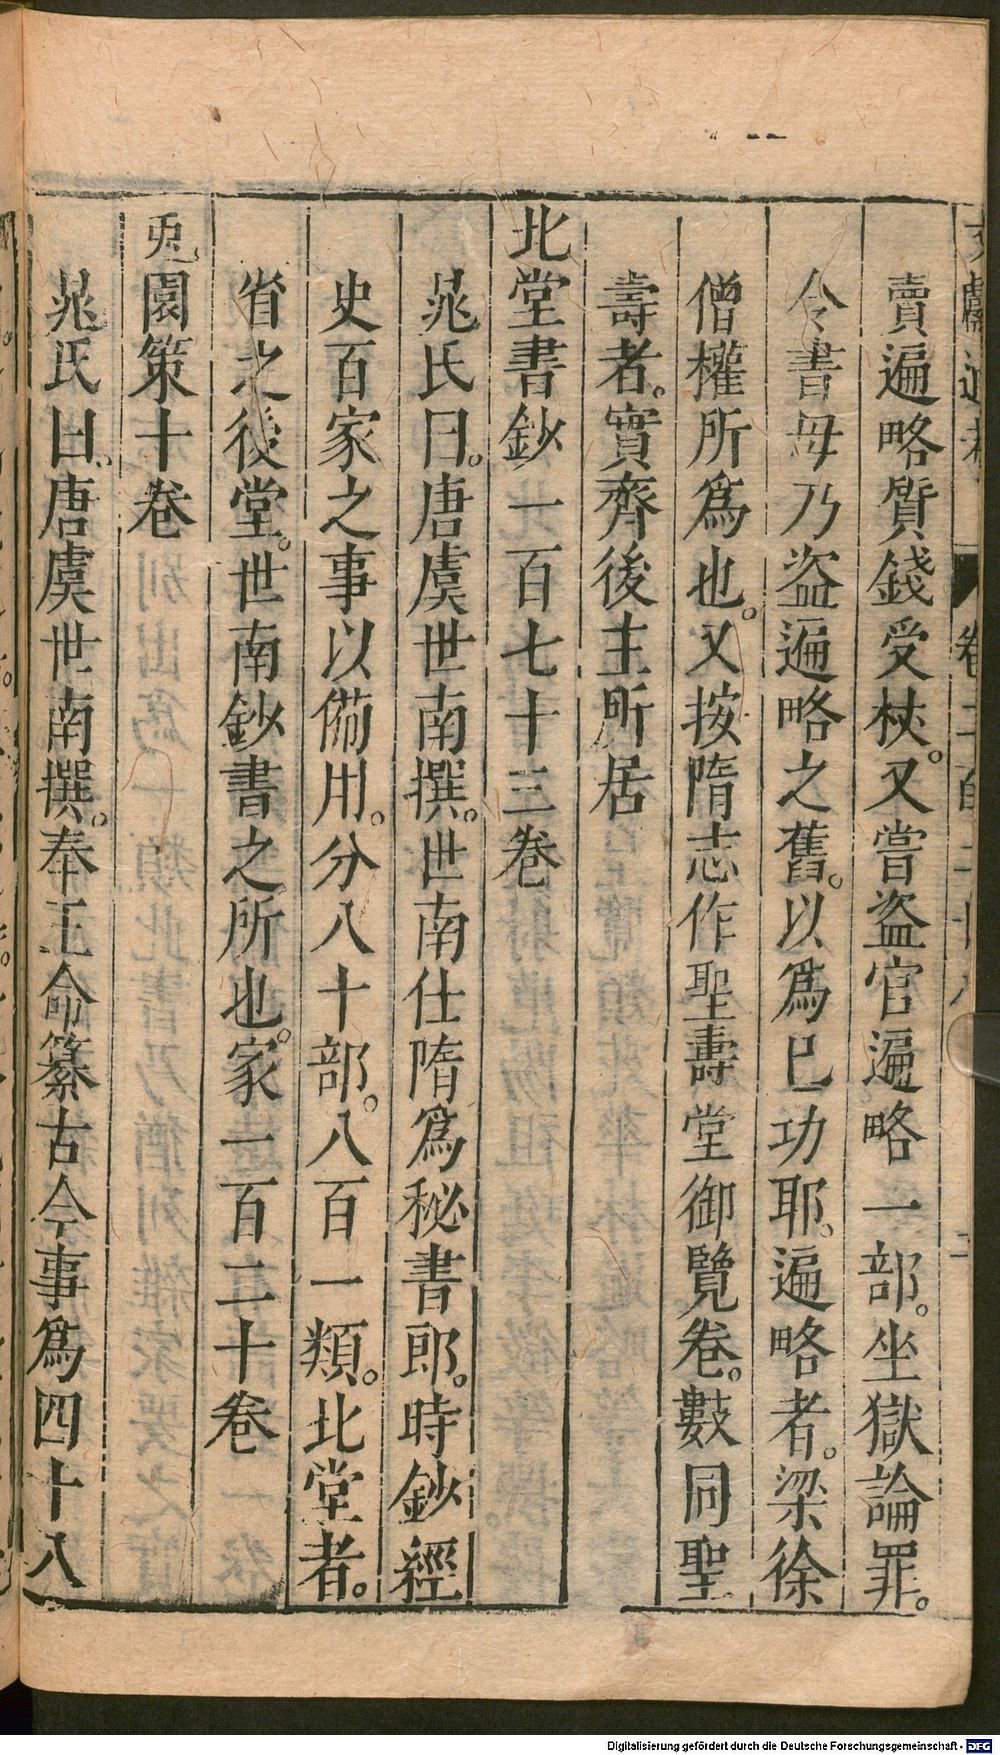 賣遍略質錢受杖。又嘗盜官遍略一部。坐獄論罪。
今書毋乃盜遍略之舊。以爲已功耶。遍略者。梁徐
僧權所爲也。又按隋志作聖壽堂御覽卷。數同聖
壽者。實齊後主所居
北堂書鈔一百七十三卷
晁氏曰。唐虞世南撰。世南仕隋爲秘書郎。時鈔經
史百家之事以備用。分八十部。八百一類。北堂者。
省之後堂。世南鈔書之所也。家一百二十卷
兎園策十卷
晁氏曰。唐虞世南撰。奉王命纂古今事爲四十八
Digitalisierung gefördert durch die Deutsche Forschungsgemeinschaft - DFG